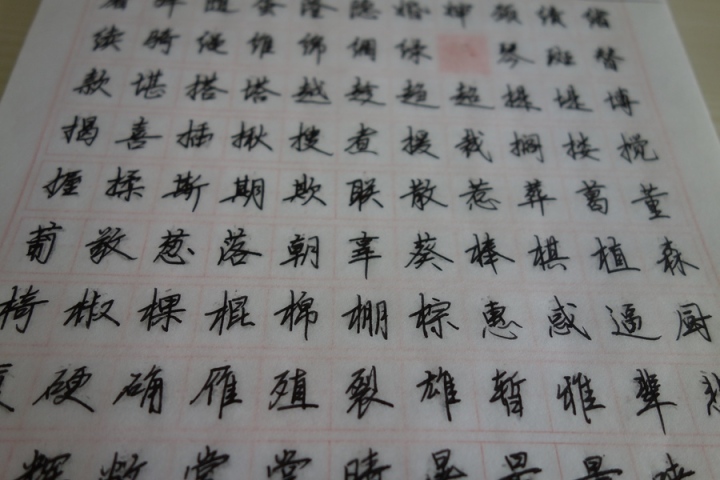 随 蛋 隆 隐 婚 婶 颈 绩 绪
续 骑 绳 维 绵 绸 绿 琴 斑 替
款 堪 搭 塔 越 趁 趋 超 提 堤 博
揭 喜 插 揪 搜 煮 援 裁 搁 搂 搅
握 揉 斯 期 欺 联 散 惹 葬 葛 董
葡 敬 葱 落 朝 辜 葵 棒 棋 植 森
椅 椒 棵 棍 棉 棚 棕 惠 惑 逼 厨
硬 确 雁 殖 裂 雄 暂 雅 辈
辉 敞 赏 掌 晴 暑 最 量